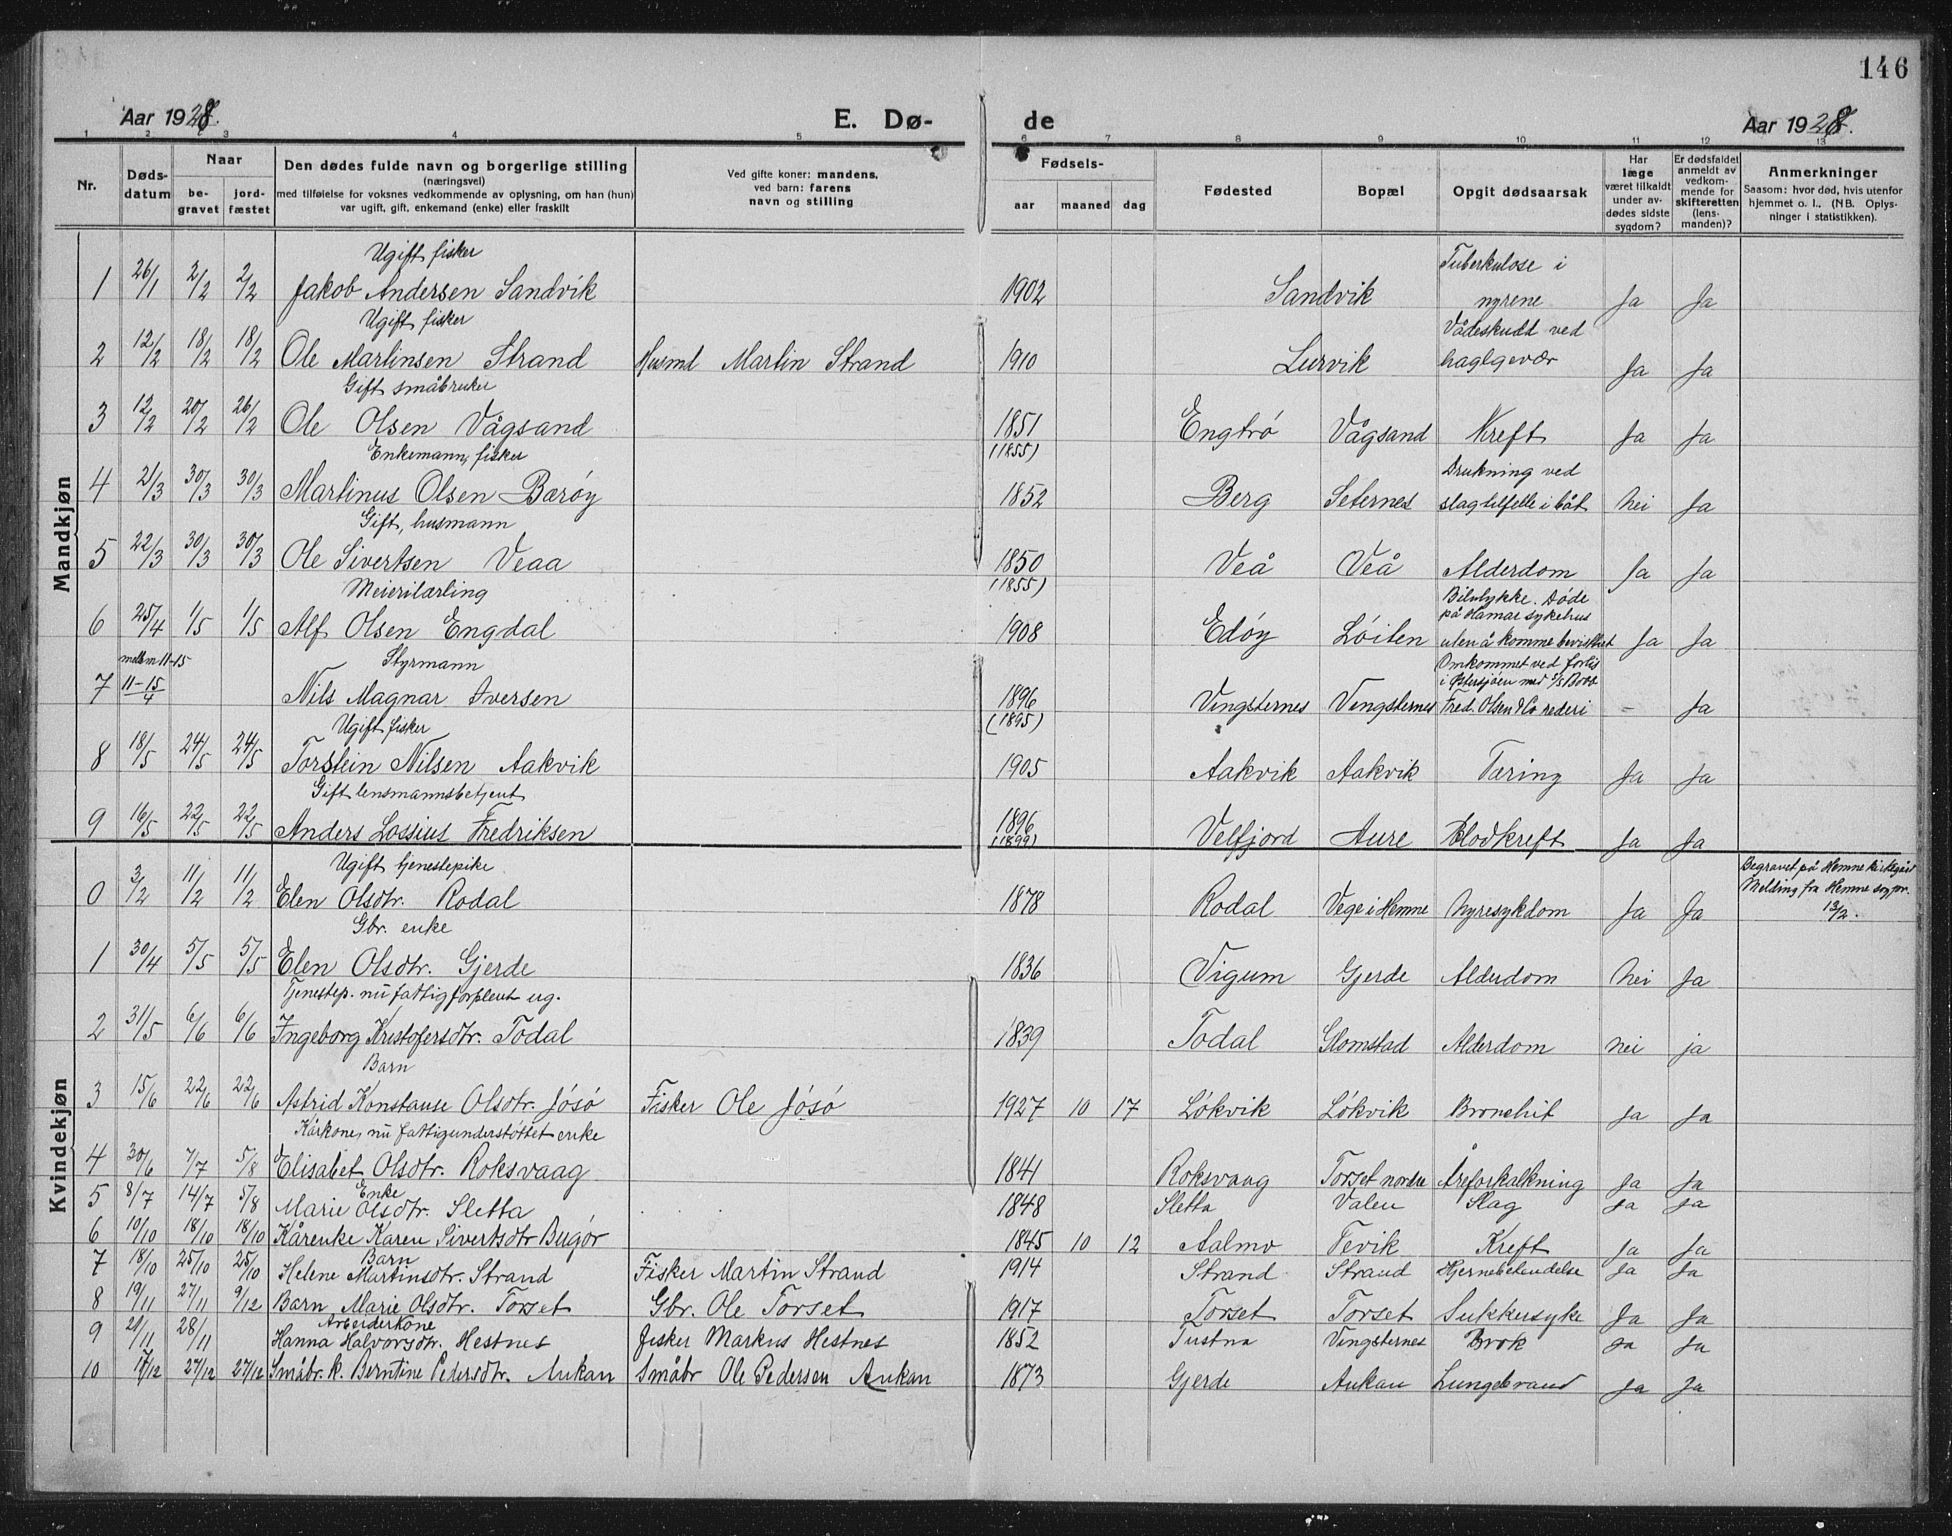 146
Aar 1928.
E. Dø-
de
Aar 1928.
1 2 3 4 5 6 7 8 9 10 11 12 13
Nr.
Døds-
datum
Naar
be-
gravet
jord-
fæstet
Den dødes fulde navn og borgerlige stilling
(næringsvei)
med tilføielse for voksnes vedkommende av oplysning, om han (hun)
var ugift, gift, enkemand (enke) eller fraskilt
Ved gifte koner: mandens,
ved barn: farens
navn og stilling
Fødsels-
aar
maaned
dag
Fødested
Bopæl
Opgit dødsaarsak
Har
læge
været tilkaldt
under av-
dødes sidste
sygdom?
Er dødsfaldet
anmeldt av
vedkom-
mende for
skifteretten
(lens-
manden)?
Anmerkninger
Saasom: hvor død, hvis utenfor
hjemmet o. l., (NB. Oplys-
ninger i statistikken).
Mandkjøn
Ugift fisker
Tuberkulose i
1 26/1 2/2 2/2 Jakob Andersen Sandvik 1902 Sandvik nyrene Ja Ja
Ugift fisker
Vådeskudd ved
2 12/2 18/2 18/2 Ole Martinsen Strand Husmd Martin Strand 1910 Lurvik haglgevær Ja Ja
Gift småbruker
3 12/2 20/2 26/2 Ole Olsen Vågsand 1851 Engtrø Vågsand Kreft Ja Ja
(1855)
Enkemann, fisker
Drukning ved
4 21/3 30/3 30/3 Martinus Olsen Barøy 1852 Berg Seternes slagtilfelle i båt Nei Ja
Gift, husmann
5 22/3 30/3 30/3 Ole Sivertsen Veaa 1850 Veå Veå Alderdom Ja Ja
(1855)
Meierilærling
Bilulykke. Døde
på Hamar sykehus
6 25/4 1/5 1/5 Alf Olsen Engdal 1908 Edøy Løiten uten å komme bevisthet Ja Ja
mellem 11-15
Styrmann
Omkommet ved forlis
i Østersjøen med
7 11-15/4 Nils Magnar Iversen 1896 Vingsternes Vingsternes Fred. Olsen & Co rederi - Ja
(1895)
Ugift fisker
8 18/5 24/5 24/5 Torstein Nilsen Aakvik 1905 Aakvik Aakvik Tæring Ja Ja
Gift lensmannsbetjent
9 16/5 22/5 22/5 Anders Lossius Fredriksen 1896 Velfjord Aure Blodkreft Ja Ja
(1899)
Kvindekjøn
Ugift tjenestepike
Begravet på Hemne kirkegård
Melding fra Hemne sogpr.
0 3/2 11/2 11/2 Elen Olsdtr. Rodal 1878 Rodal Vege i Hemne Nyresykdom Ja Ja 13/2.
Gbr. enke
1 30/4 5/5 5/5 Elen Olsdtr. Gjerde 1836 Vigum Gjerde Alderdom Nei Ja
Tjenestep. nu fattigforpleiet ug.
2 31/5 6/6 6/6 Ingeborg Kristofersdtr. Todal 1839 Todal Glomstad Alderdom nei ja
Barn
3 15/6 22/6 22/6 Astrid Konstanse Olsdtr. Jøsø Fisker Ole Jøsø 1927 10 17 Løkvik Løkvik Bronchit Ja Ja
Kårkone, nu fattigunderstøttet enke
4 30/6 7/7 5/8 Elisabet Olsdtr. Roksvaag 1841 Roksvaag Torset nordre Åreforkalkning Ja Ja
Enke
5 8/7 14/7 5/8 Marie Olsdtr. Sletta 1848 Sletta Valen Slag Ja Ja
6 10/10 18/10 18/10 Kårenke Karen Sivertsdtr Bugør 1845 10 12 Aalmo Tevik Kreft Ja Ja
Barn
7 18/10 25/10 25/10 Helene Martinsdtr. Strand Fisker Martin Strand 1914 Strand Strand Hjernebetendelse Ja Ja
8 19/11 27/11 9/12 Barn Marie Olsdtr. Torset Gbr. Ole Torset 1917 Torset Torset Sukkersyke Ja Ja
Arbeiderkone
9 21/11 28/11 Hanna Halvorsdtr. Hestnes Fisker Markus Hestnes 1852 Tustna Vingsternes Brok Ja Ja
10 17/12 27/12 27/12 Småbr.k. Berntine Pedersdtr. Aukan Småbr Ole Pedersen Aukan 1873 Gjerde Aukan Lungebrand Ja Ja